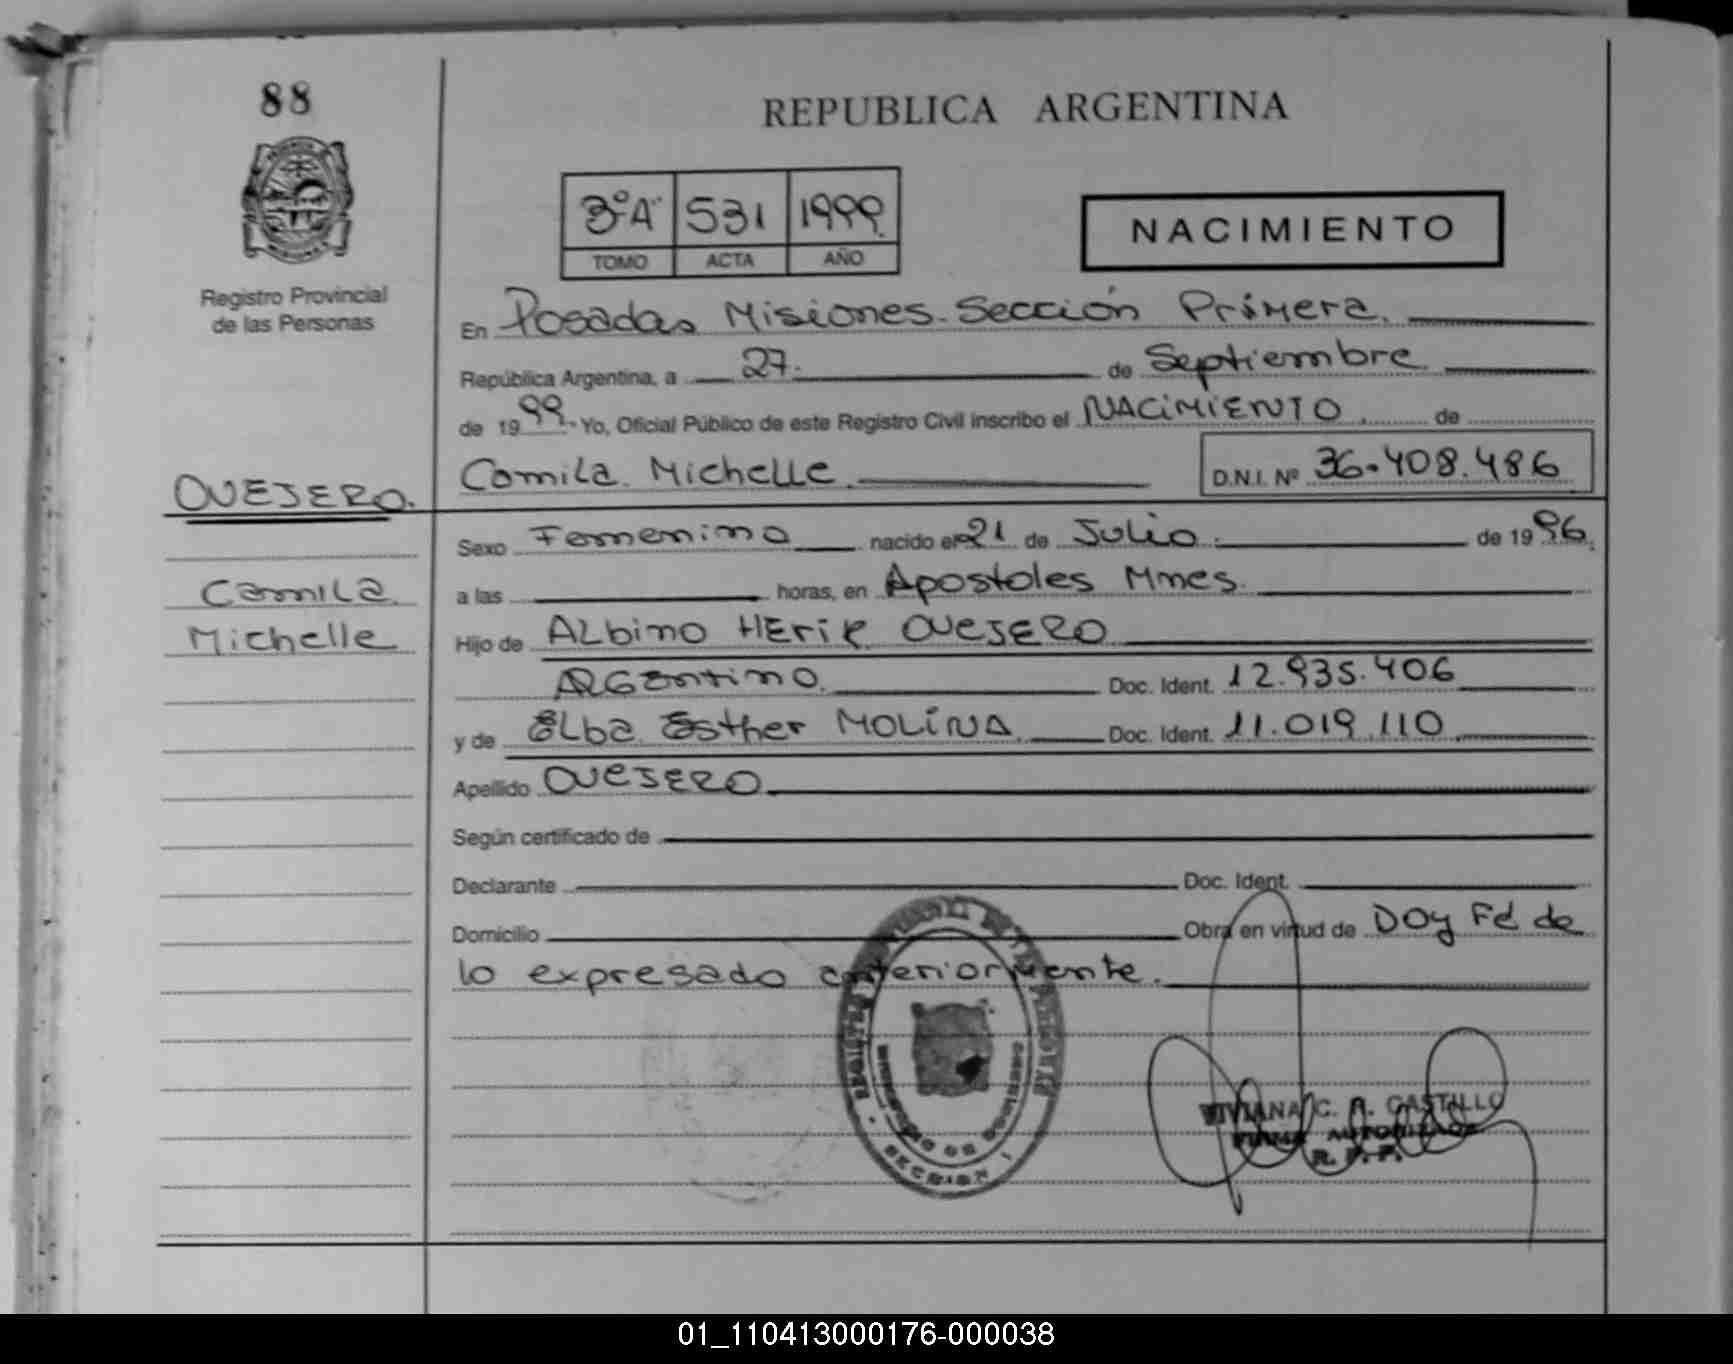 88
REPUBLICA ARGENTINA
3º"A" 531 1999
TOMO ACTA AÑO
NACIMIENTO
Registro Provincial
de las Personas
En Posadas Misiones. Sección Primera.
República Argentina, a 27. de Septiembre
de 1999.- Yo, Oficial Público de este Registro Civil inscribo el NACIMIENTO de
Camila Michelle D.N.I. Nº 36.408.486
OVEJERO.
Sexo Femenino nacido el 21 de Julio de 1996.
Camila
a las horas, en Apostoles Mnes.
Michelle
Hijo de ALbino HEriK OVEJERO
ARGentino. Doc. Ident. 12.935.406
y de ELba Esther MOLiNA Doc. Ident. 11.019.110
Apellido OVEJERO
Según certificado de
Declarante Doc. Ident.
Domicilio Obra en virtud de DOy Fé de
lo expresado anteriormente.
SECCION 1
VIVIANA C. A. CASTILLO
FIRMA AUTORIZADA
R. P. P.
01_110413000176-000038